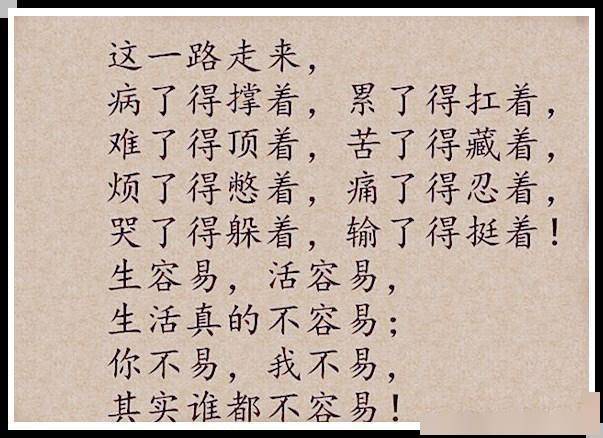 这一路走来，
病了得撑着，累了得扛着，
难了得顶着，苦了得藏着，
烦了得憋着，痛了得忍着，
哭了得躲着，输了得挺着！
生容易，活容易，
生活真的不容易；
你不易，我不易，
其实谁都不容易！